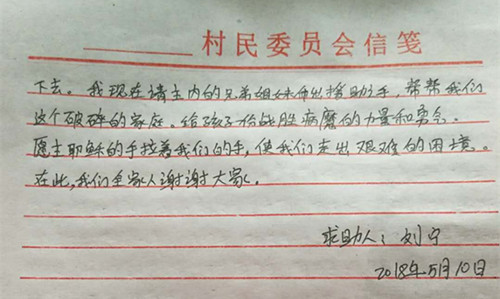 村民委员会信笺
下去。我现在请主内的兄弟姐妹伸出援助之手，帮帮我们
这个破碎的家庭。给孩子份战胜病魔的力量和勇气。
愿主耶稣的手拉着我们的手，使我们走出艰难的困境。
在此，我们全家人谢谢大家。
求助人：刘宁
2018年5月10日